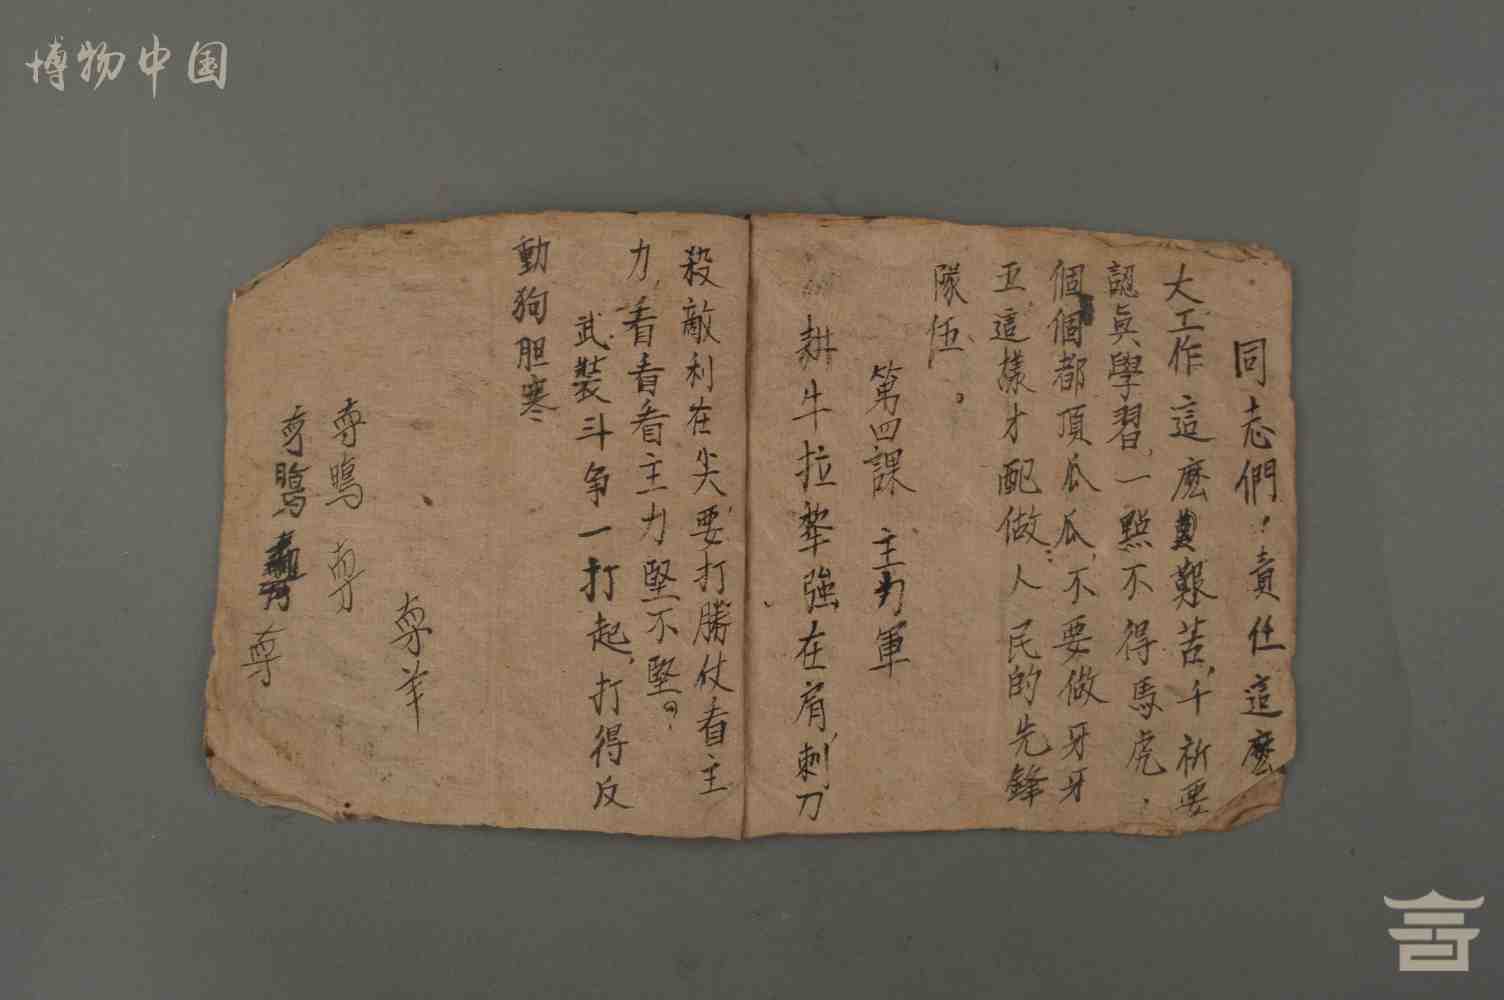 博物中国
同志們！責任這麼
大工作這麼艱苦，千祈要
認真學習，一點不得馬虎，
個個都頂瓜瓜，不要做牙牙
亚這樣才配做：人民的先鋒
隊伍。
第四課 主力軍
耕牛拉犂強在肩，刺刀
殺敵利在尖要打勝仗看主
力，看看看主力堅不堅。
武裝斗争一打起，打得反
動狗胆寒